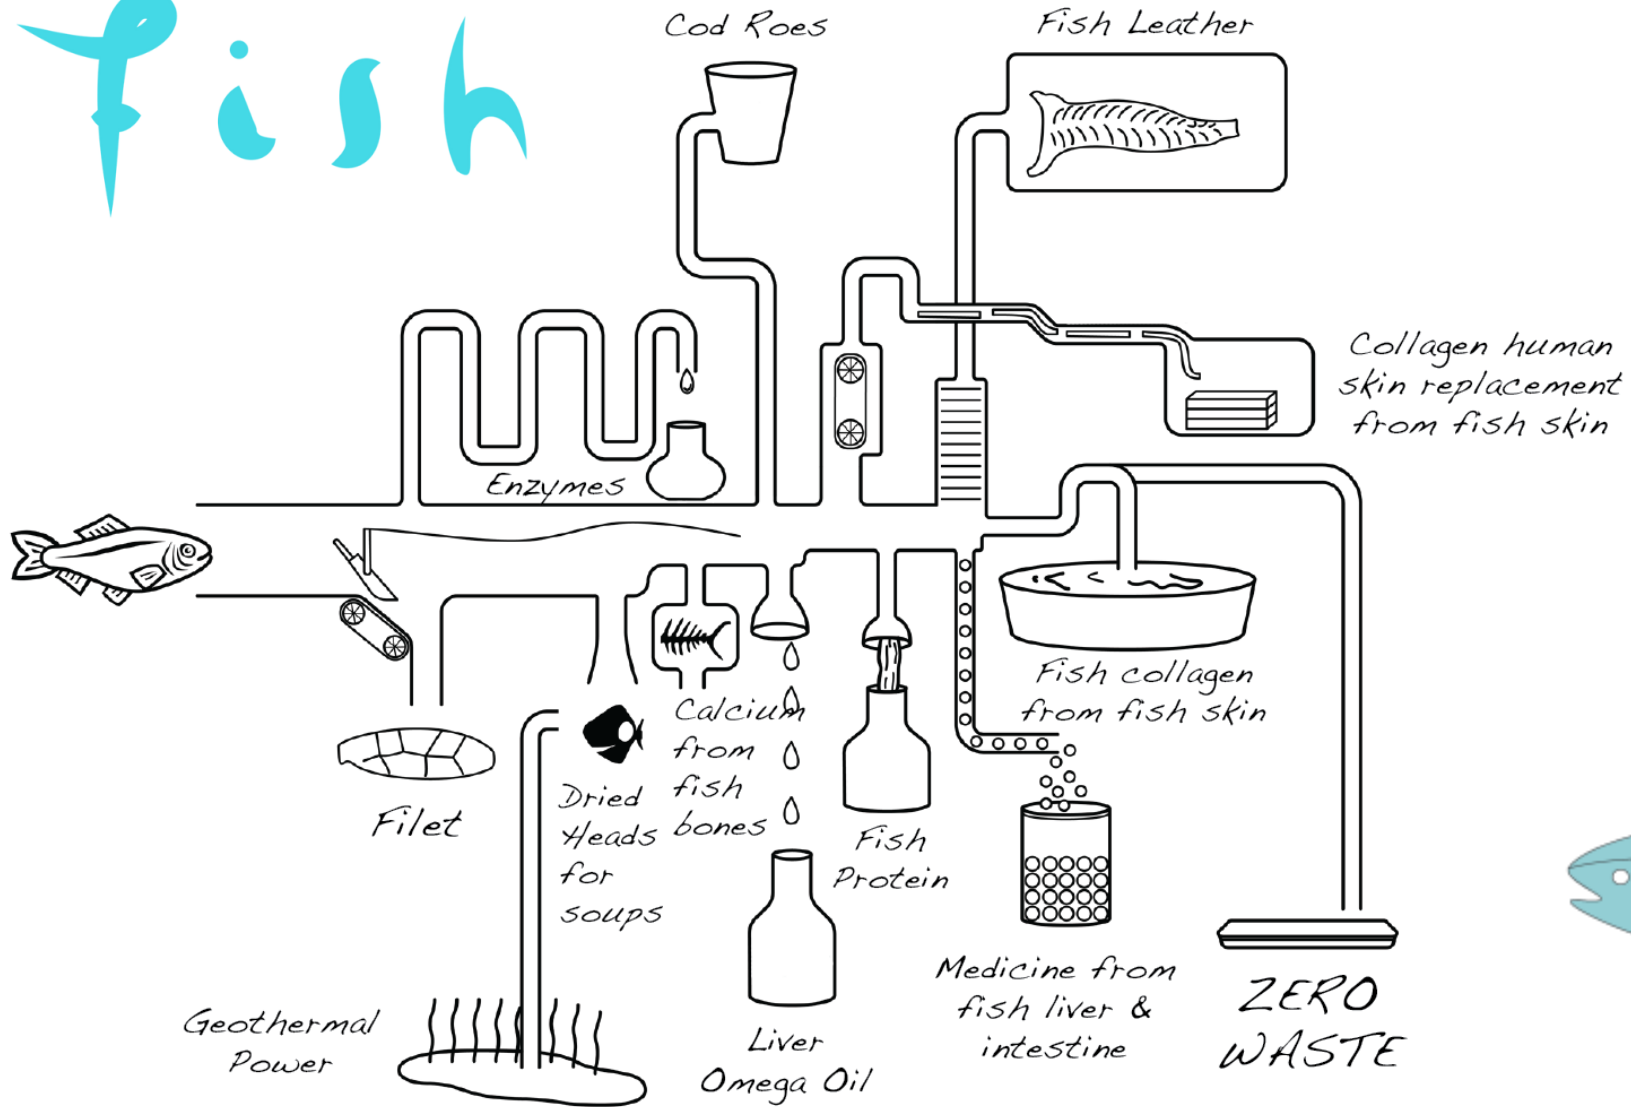 Fish
Cod Roes
Fish Leather
Collagen human
skin replacement
from fish skin
Enzymes
Fish collagen
from fish skin
Calcium
from
fish
bones
Filet
Dried
Heads
for
soups
Fish
Protein
Medicine from
fish liver &
intestine
ZERO
WASTE
Geothermal
Power
Liver
Omega Oil